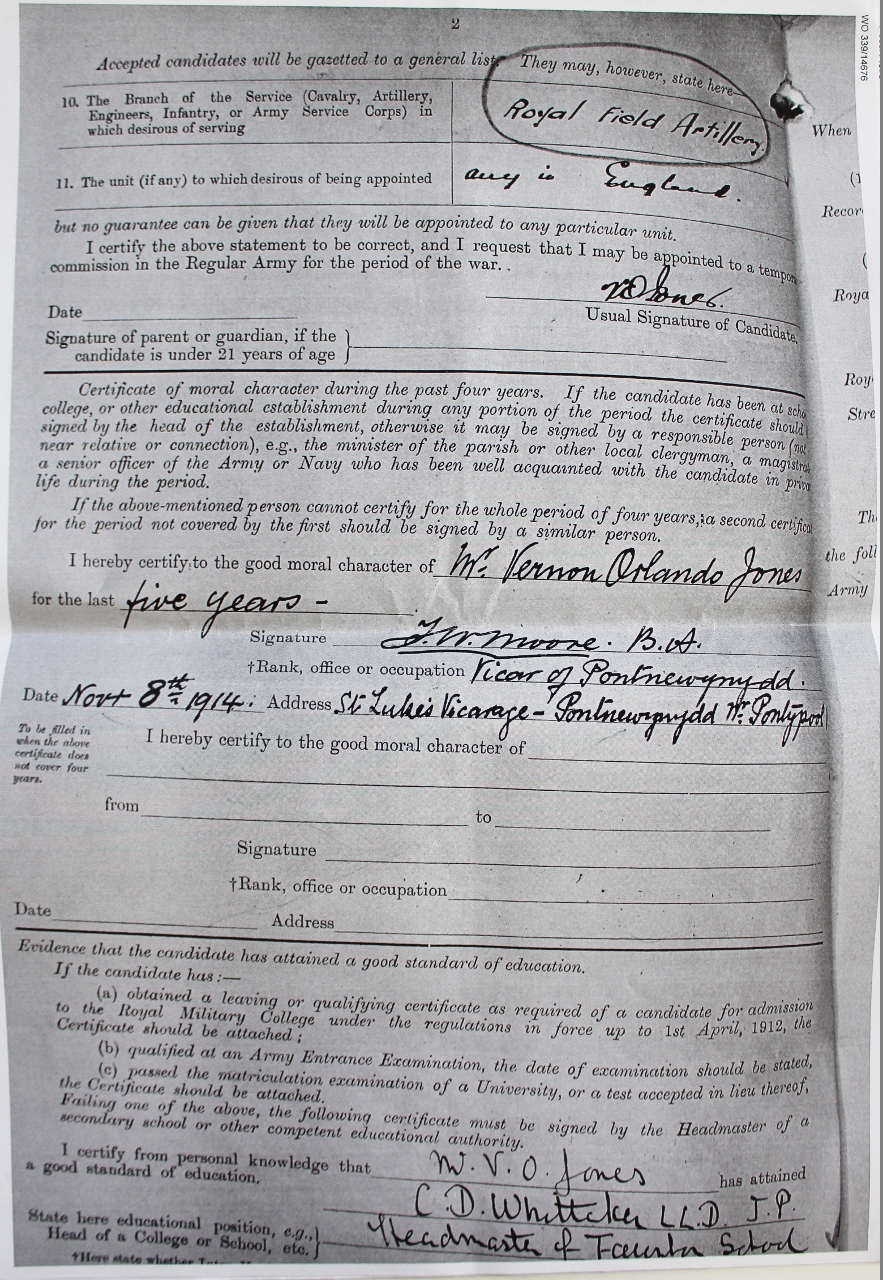 2
WO 339/14676
Accepted candidates will be gazetted to a general list. They may, however, state here—
10. The Branch of the Service (Cavalry, Artillery,
Engineers, Infantry, or Army Service Corps) in
which desirous of serving
Royal Field Artillery.
11. The unit (if any) to which desirous of being appointed
any in England.
but no guarantee can be given that they will be appointed to any particular unit.
I certify the above statement to be correct, and I request that I may be appointed to a tempor
commission in the Regular Army for the period of the war.
VOJones.
Date
Usual Signature of Candidate.
Signature of parent or guardian, if the
candidate is under 21 years of age
Certificate of moral character during the past four years. If the candidate has been at scho
college, or other educational establishment during any portion of the period the certificate should
signed by the head of the establishment, otherwise it may be signed by a responsible person (not
near relative or connection), e.g., the minister of the parish or other local clergyman, a magistra
a senior officer of the Army or Navy who has been well acquainted with the candidate in priva
life during the period.
If the above-mentioned person cannot certify for the whole period of four years, a second certifica
for the period not covered by the first should be signed by a similar person.
I hereby certify to the good moral character of Mr. Vernon Orlando Jones
for the last five years -
Signature J.W. Moore. B.A.
†Rank, office or occupation Vicar of Pontnewynydd.
Date Novr 8th 1914. Address St Luke's Vicarage - Pontnewynydd Nr. Pontypool
To be filled in
when the above
certificate does
not cover four
years.
I hereby certify to the good moral character of
from
to
Signature
†Rank, office or occupation
Date
Address
Evidence that the candidate has attained a good standard of education.
If the candidate has:—
(a) obtained a leaving or qualifying certificate as required of a candidate for admission
to the Royal Military College under the regulations in force up to 1st April, 1912, the
Certificate should be attached;
(b) qualified at an Army Entrance Examination, the date of examination should be stated,
(c) passed the matriculation examination of a University, or a test accepted in lieu thereof,
the Certificate should be attached.
Failing one of the above, the following certificate must be signed by the Headmaster of a
secondary school or other competent educational authority.
I certify from personal knowledge that M. V. O. Jones has attained
a good standard of education.
C. D. Whittaker LL.D. J.P.
State here educational position, e.g.,
Head of a College or School, etc.
Headmaster of Taunton School
†Here state whether
When
(1
Recor
(
Roya
Roy
Stre
Th
the foll
Army